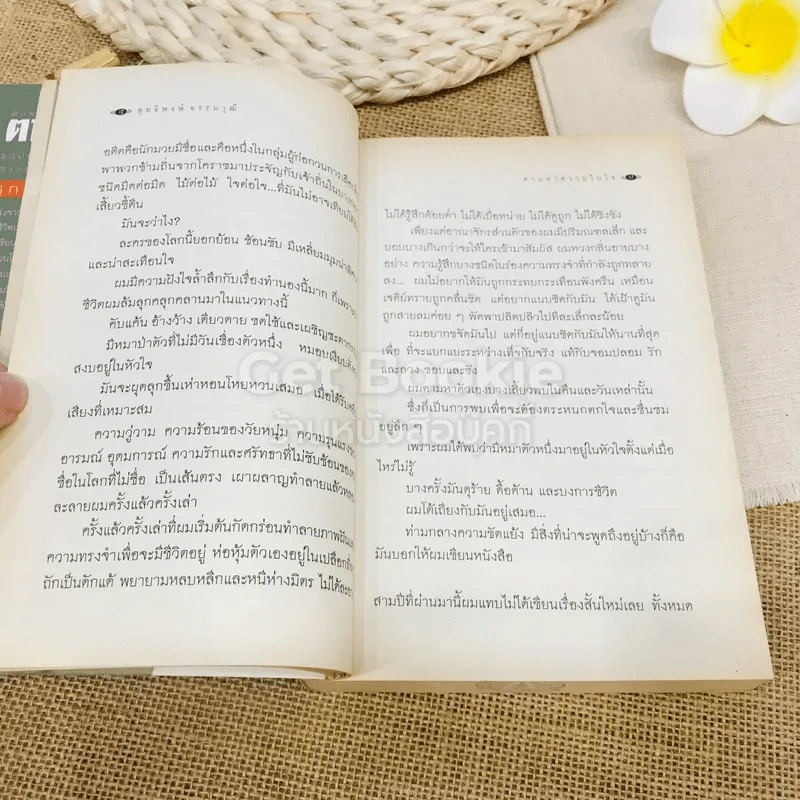 สุทธิพงษ์ ธรรมวุฒิ
อดีตคือนักมวยมีชื่อและคือหนึ่งในกลุ่มผู้ก่อกวนการเลือกตั้ง
พาพวกข้ามถิ่นจากโคราชมาประจัญกับเจ้าถิ่นใน
ชนิดมีดต่อมีด ไม้ต่อไม้ ใจต่อใจ...ที่มันไม่อาจเทียมได้
เสี้ยวชีดิน
มันจะว่าไง?
ละครของโลกนี้ยอกย้อน ซ้อนซับ มีเหลี่ยมมุมน่า
และน่าสะเทือนใจ
ผมมีความฝังใจล้ำลึกกับเรื่องทำนองนี้มาก ก็เพราะ
ชีวิตผมล้มลุกคลุกคลานมาในแนวทางนี้
คับแค้น อ้างว้าง เดียวดาย ชดใช้และเผชิญชะตา
มีหมาป่าตัวที่ไม่มีวันเชื่องตัวหนึ่ง หมอบเงียบ
สงบอยู่ในหัวใจ
มันจะผุดลุกขึ้นเห่าหอนโหยหวนเสมอ เมื่อได้รับ
เสียงที่เหมาะสม
ความวู่วาม ความร้อนของวัยหนุ่ม ความรุนแรง
อารมณ์ อุดมการณ์ ความรักและศรัทธาที่ไม่ซับซ้อนของ
ซื่อในโลกที่ไม่ซื่อ เป็นเส้นตรง เผาผลาญทำลายแล้วหลอม
ละลายผมครั้งแล้วครั้งเล่า
ครั้งแล้วครั้งเล่าที่ผมเริ่มต้นกัดกร่อนทำลายภาพฝัน
ความทรงจำเพื่อจะมีชีวิตอยู่ ห่อหุ้มตัวเองอยู่ในเปลือกที่
ถักเป็นดักแด้ พยายามหลบหลีกและหนีห่างมิตร ไม่ได้
ตามหาความในใจ
ไม่ได้รู้สึกด้อยต่ำ ไม่ได้เบื่อหน่าย ไม่ได้ดูถูก ไม่ได้ชิงชัง
เพียงแค่อาณาจักรส่วนตัวของผมมีปริมณฑลเล็ก และ
บอบบางเกินกว่าจะให้ใครเข้ามาสัมผัส ผมหวงกลิ่นอายบาง
อย่าง ความรู้สึกบางชนิดในร่องความทรงจำที่กำลังถูกทลาย
ลง... ผมไม่อยากให้มันถูกกระทบกระเทือนพังครืน เหมือน
เจดีย์ทรายถูกคลื่นซัด แต่อยากแนบชิดกับมัน ได้เฝ้าดูมัน
ถูกสายลมค่อย ๆ พัดพาปลิดปลิวไปทีละเล็กละน้อย
ผมอยากขจัดมันไป แต่ก็อยู่แนบชิดกับมันให้นานที่สุด
เพื่อ ที่จะแยกแยะระหว่างเท็จกับจริง แท้กับจอมปลอม รัก
และลวง ชอบและชัง
ผมตามหาตัวเองบางเสี้ยวพบในคืนและวันเหล่านั้น
ซึ่งก็เป็นการพบเพื่อจะต้องตระหนกตกใจและชื่นชม
อยู่ลึก ๆ
เพราะผมได้พบว่ามีหมาตัวหนึ่งมาอยู่ในหัวใจตั้งแต่เมื่อ
ไหร่ไม่รู้
บางครั้งมันดุร้าย ดื้อด้าน และบงการชีวิต
ผมโต้เถียงกับมันอยู่เสมอ...
ท่ามกลางความขัดแย้ง มีสิ่งที่น่าจะพูดถึงอยู่บ้างก็คือ
มันบอกให้ผมเขียนหนังสือ
สามปีที่ผ่านมานี้ผมแทบไม่ได้เขียนเรื่องสั้นใหม่เลย ทั้งหมด
Get Bookie
ร้านหนังสือบุคกี้